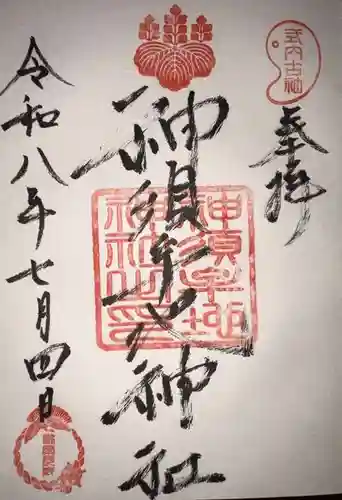 式内古社
奉拝
神須牟地神社
神須牟地
神社之印
令和八年七月四日